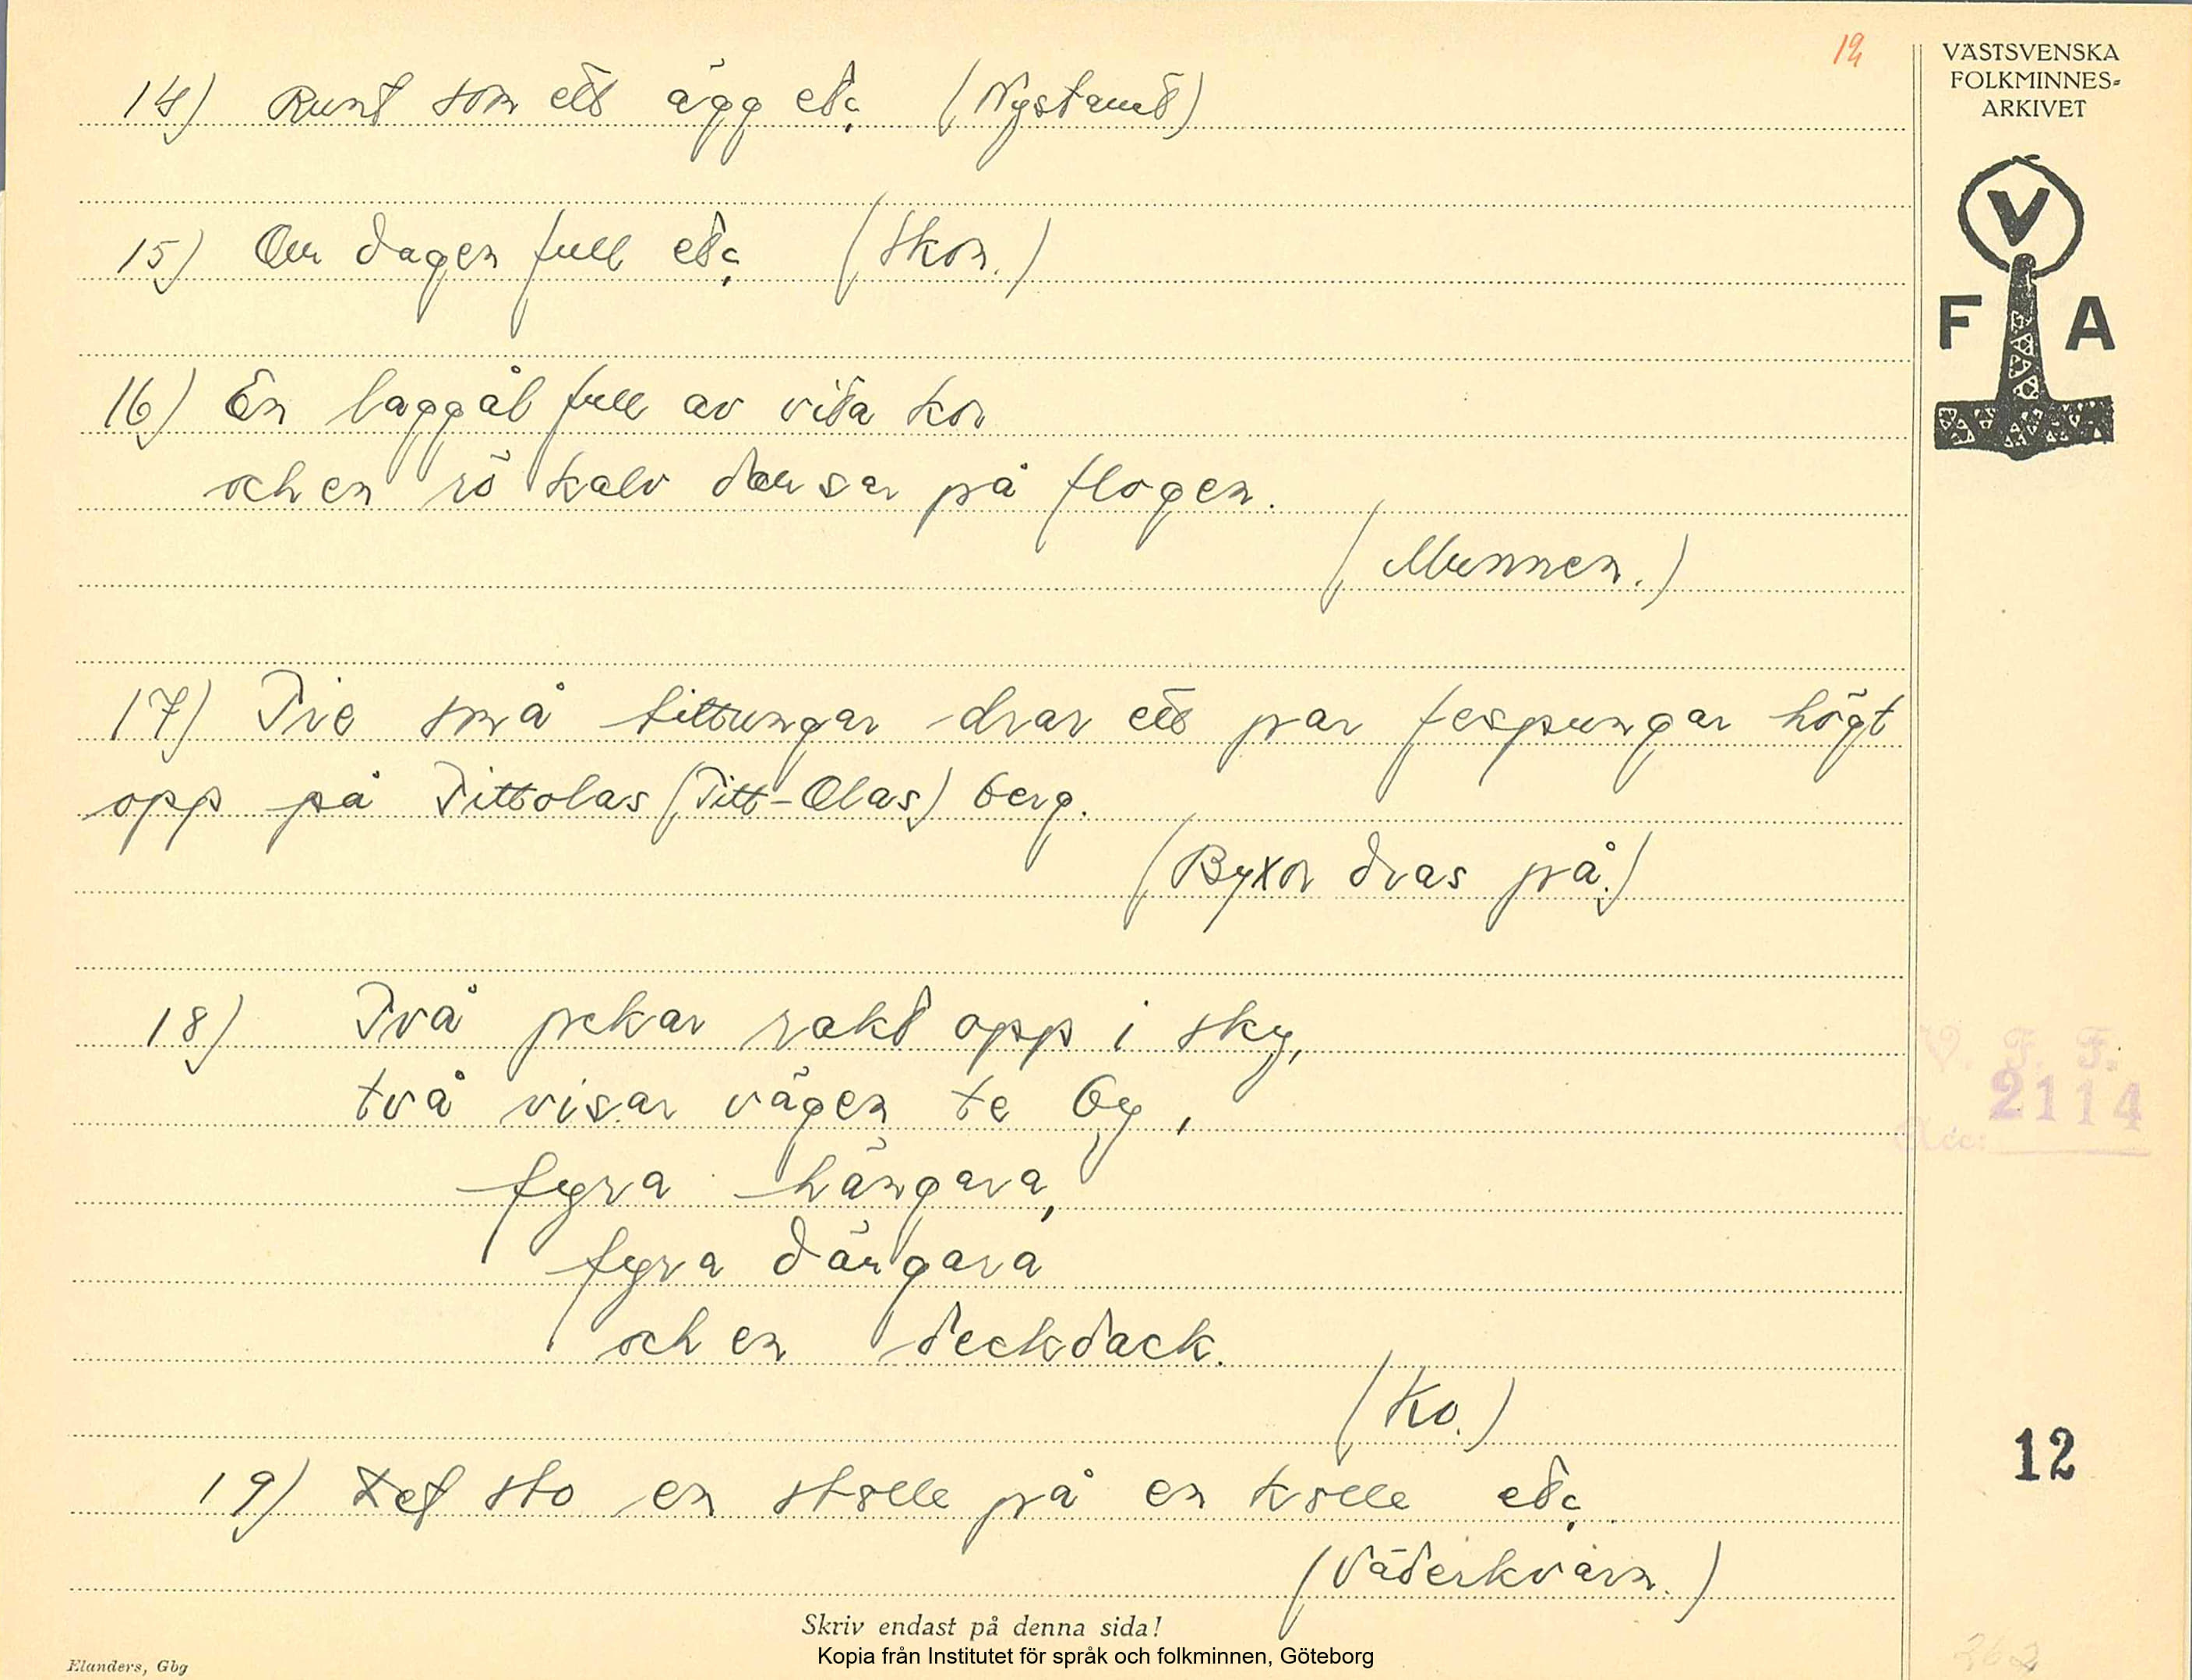 12
VÄSTSVENSKA
FOLKMINNES-
ARKIVET
V
F A
14) Runt som ett ägg etc (Nystamt)
15) Om dagen full etc (Skon.)
16) En laggål full av vita kor
och en rö kalv dansar på flogen.
(Munnen.)
17) Tie små tittungar drar ett par fespungar högt
opp på Tittolas (Titt-Olas) berg.
(Byxor dras på.)
18) Två pekar rakt opp i sky,
två visar vägen te by,
fyra hängara,
fyra dängara
och en deckdack.
(Ko.)
19) Det sto en stolle på en kolle etc
(Väderkvarn.)
V. F. F.
2114
Acc:
12
Skriv endast på denna sida!
Kopia från Institutet för språk och folkminnen, Göteborg
Elanders, Gbg
262